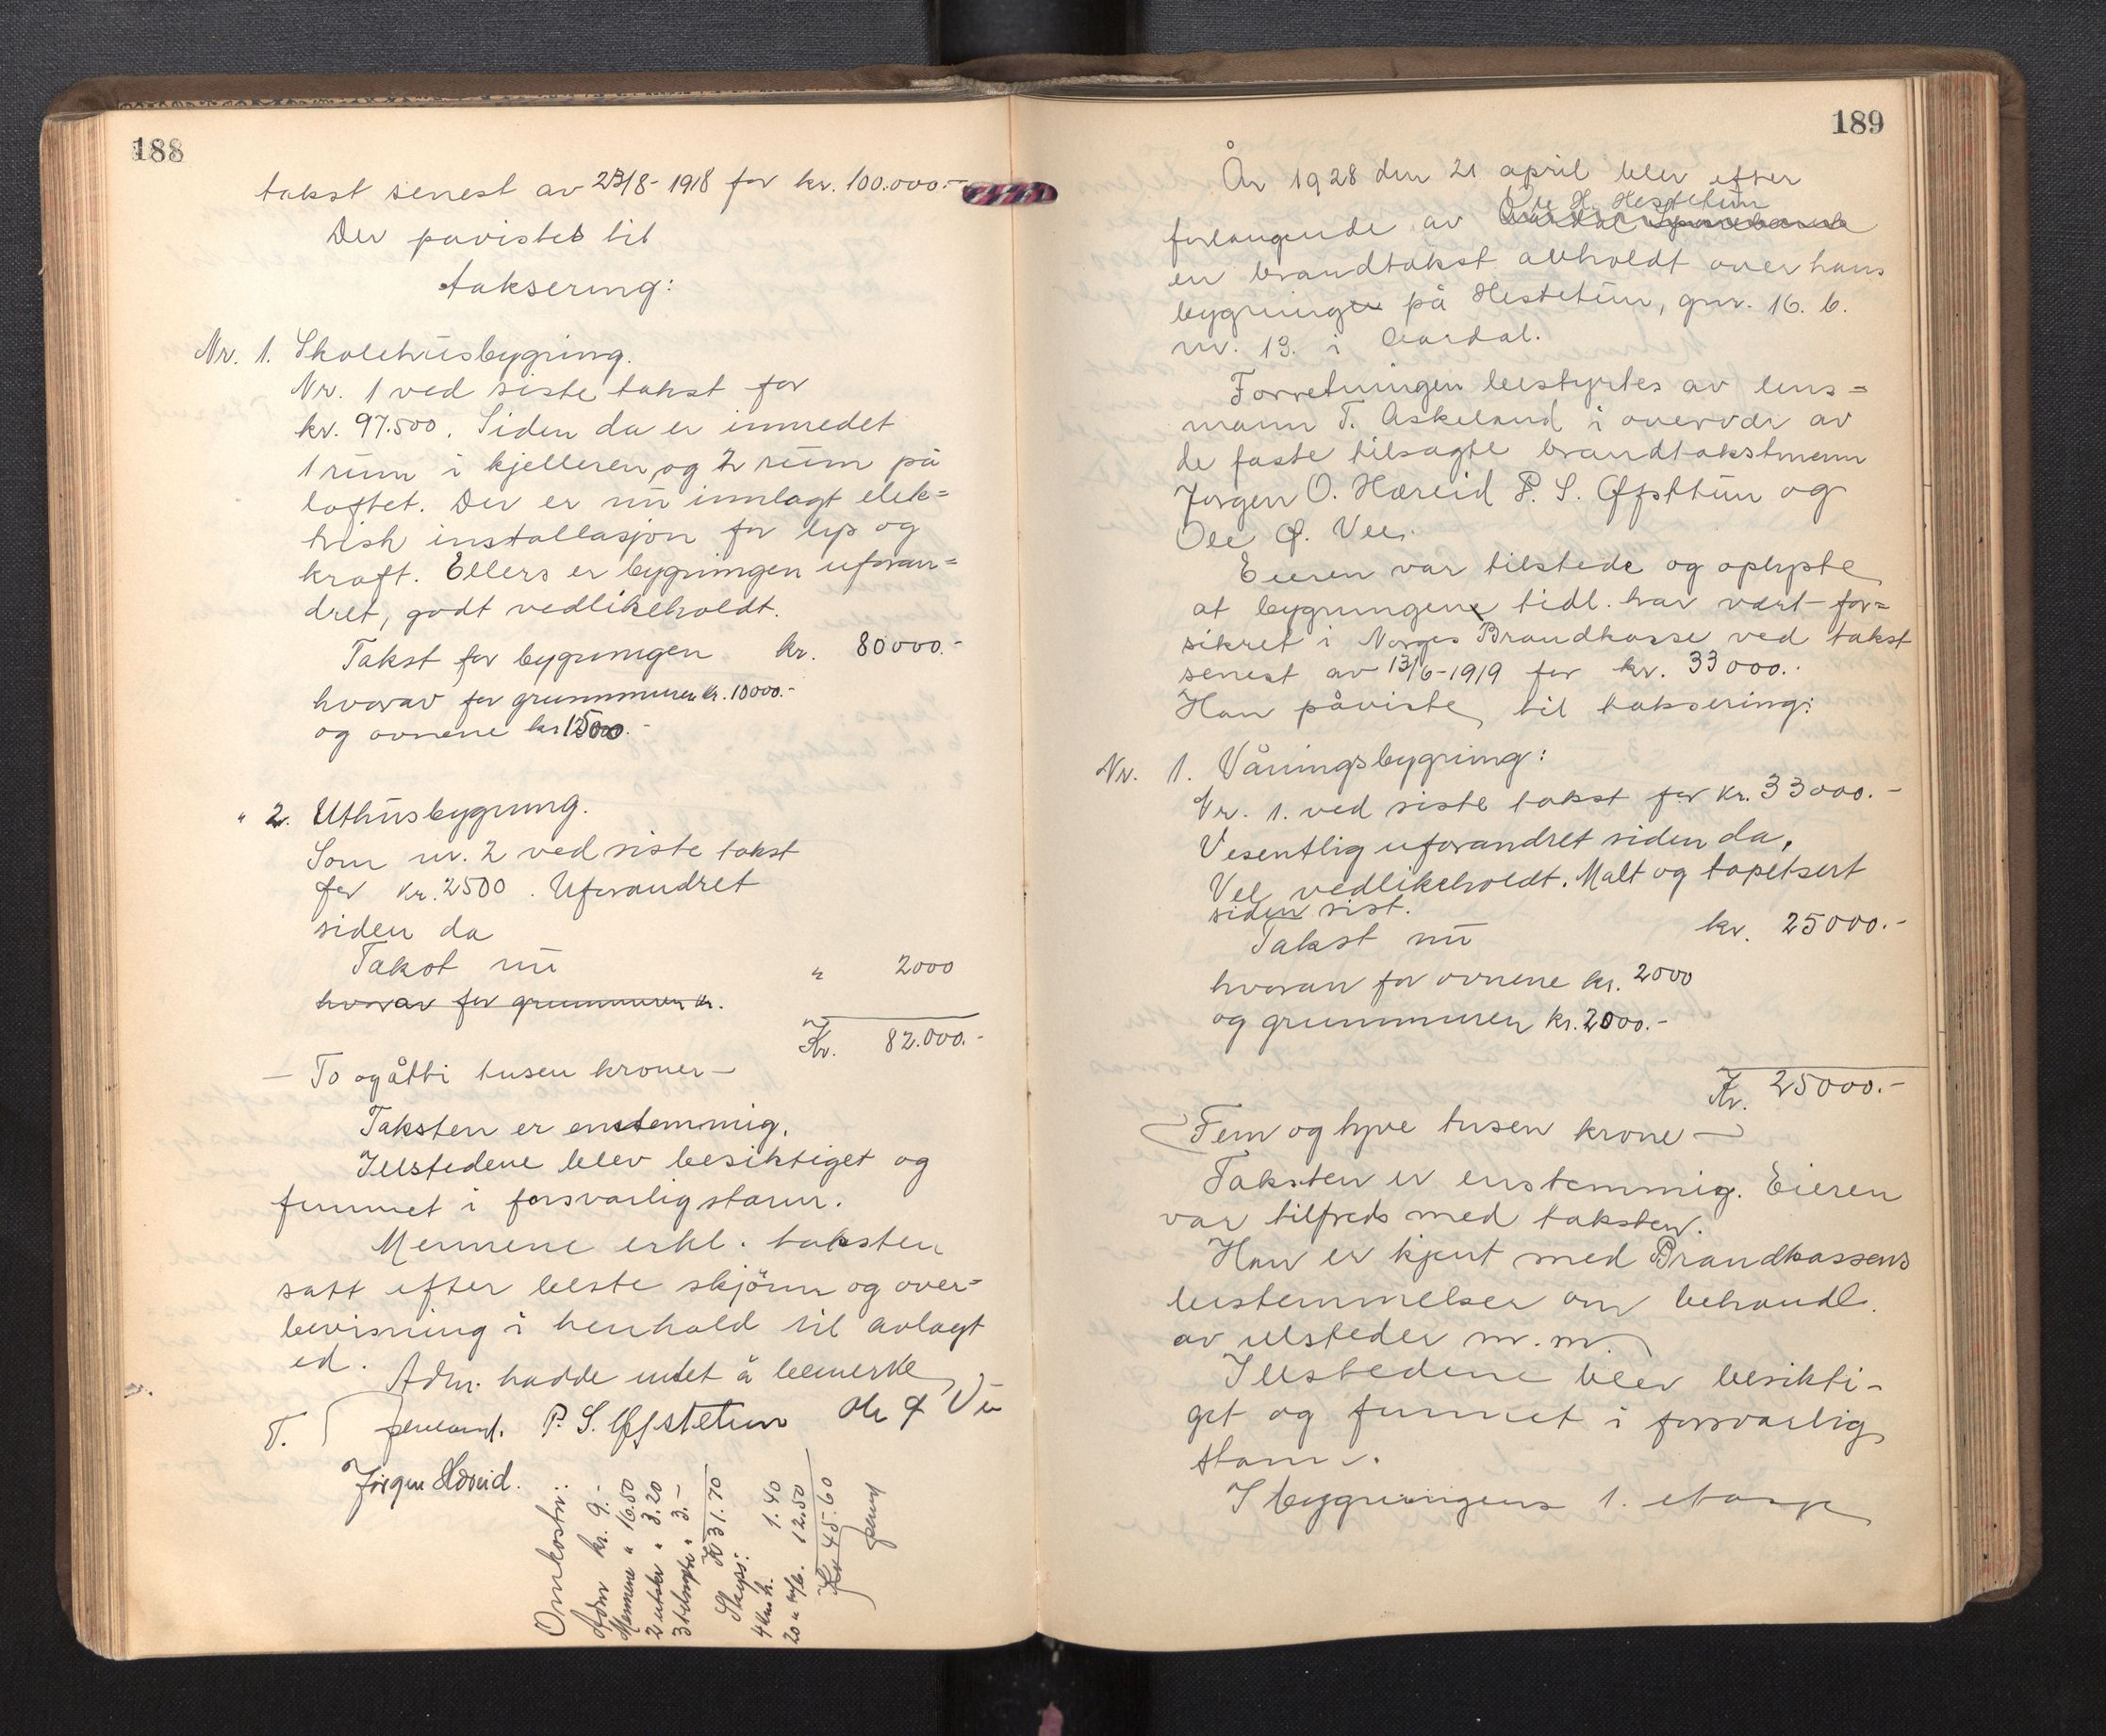 188
takst senest av 23/8-1918 for kr. 100.000.-
Der pavistes til
taksering:
Nr. 1. Skolehusbygning.
Nr. 1 ved siste takst for
kr. 97.500. Siden da er innredet
1 rum i kjelleren og 2 rum på
loftet. Der er nu innlagt elek=
trisk installasjon for lys og
kraft. Ellers er bygningen uforan=
dret, godt vedlikeholdt.
Takst for bygningen kr. 80000.-
hvorav for grunnmuren kr. 10000.-
og ovnene kr 1500.-
" 2. Uthusbygning.
Som nr. 2 ved siste takst
for kr. 2500. Uforandret
siden da
Takst nu " 2000
hvorav for grunnmuren kr.
Kr. 82.000.-
- To og åtti tusen kroner -
Taksten er enstemmig.
Ildstedene blev besiktiget og
funnet i forsvarlig stann.
Mennene erkl. taksten
satt efter beste skjönn og over=
bevisning i henhold til avlagt
ed. Adm. hadde intet å bemerke
T. P. S. Ofstetun Ole Ø Ve
Jørgen Hæreid.
Omkostn:
Adm kr. 9.-
Mennene " 16.50
2 utskr " 3.20
3 " 3.-
Kr 31.70
Skyss:
4 km h. 1.40
20 " m/b. 12.50
Kr 45.60
189
År 1928 den 21 april blev efter
Ole H. Hestetun
forlangende av Aardal Sparebank
en brandtakst avholdt over hans
bygninger på Hestetun, gnr. 16. b.
nr. 13. i Aardal.
Forretningen bestyrtes av lens=
mann T. Askeland i overvær av
de faste tilsagte brandtakstmenn
Jørgen O. Hæreid P. S. Ofsttun og
Ole Ø. Vee.
Eieren var tilstede og oplyste
at bygningene tidl. har vært for=
sikret i Norges Brandkasse ved takst
senest av 13/6-1919 for kr. 33000.-
Han påviste til taksering:
Nr. 1. Våningsbygning:
Nr. 1. ved siste takst for kr. 33000.-
Vesentlig uforandret siden da.
Vel vedlikeholdt. Malt og tapetsert
siden sist.
Takst nu kr. 25000.-
hvorav for ovnene kr. 2000
og grunnmuren kr. 2000.-
Kr. 25000.-
- Fem og tyve tusen krone -
Taksten er enstemmig. Eieren
var tilfreds med taksten.
Han er kjent med Brandkassens
bestemmelser om behandl.
av ildsteder m. m.
Ildstedene blev besikti-
get og funnet i forsvarlig
stann.
I bygningens 1. etasje